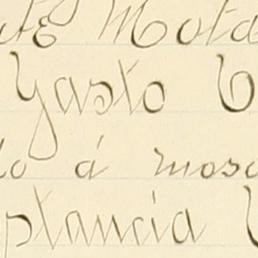 de Mota
Gasto
lo á mosc
ptancia